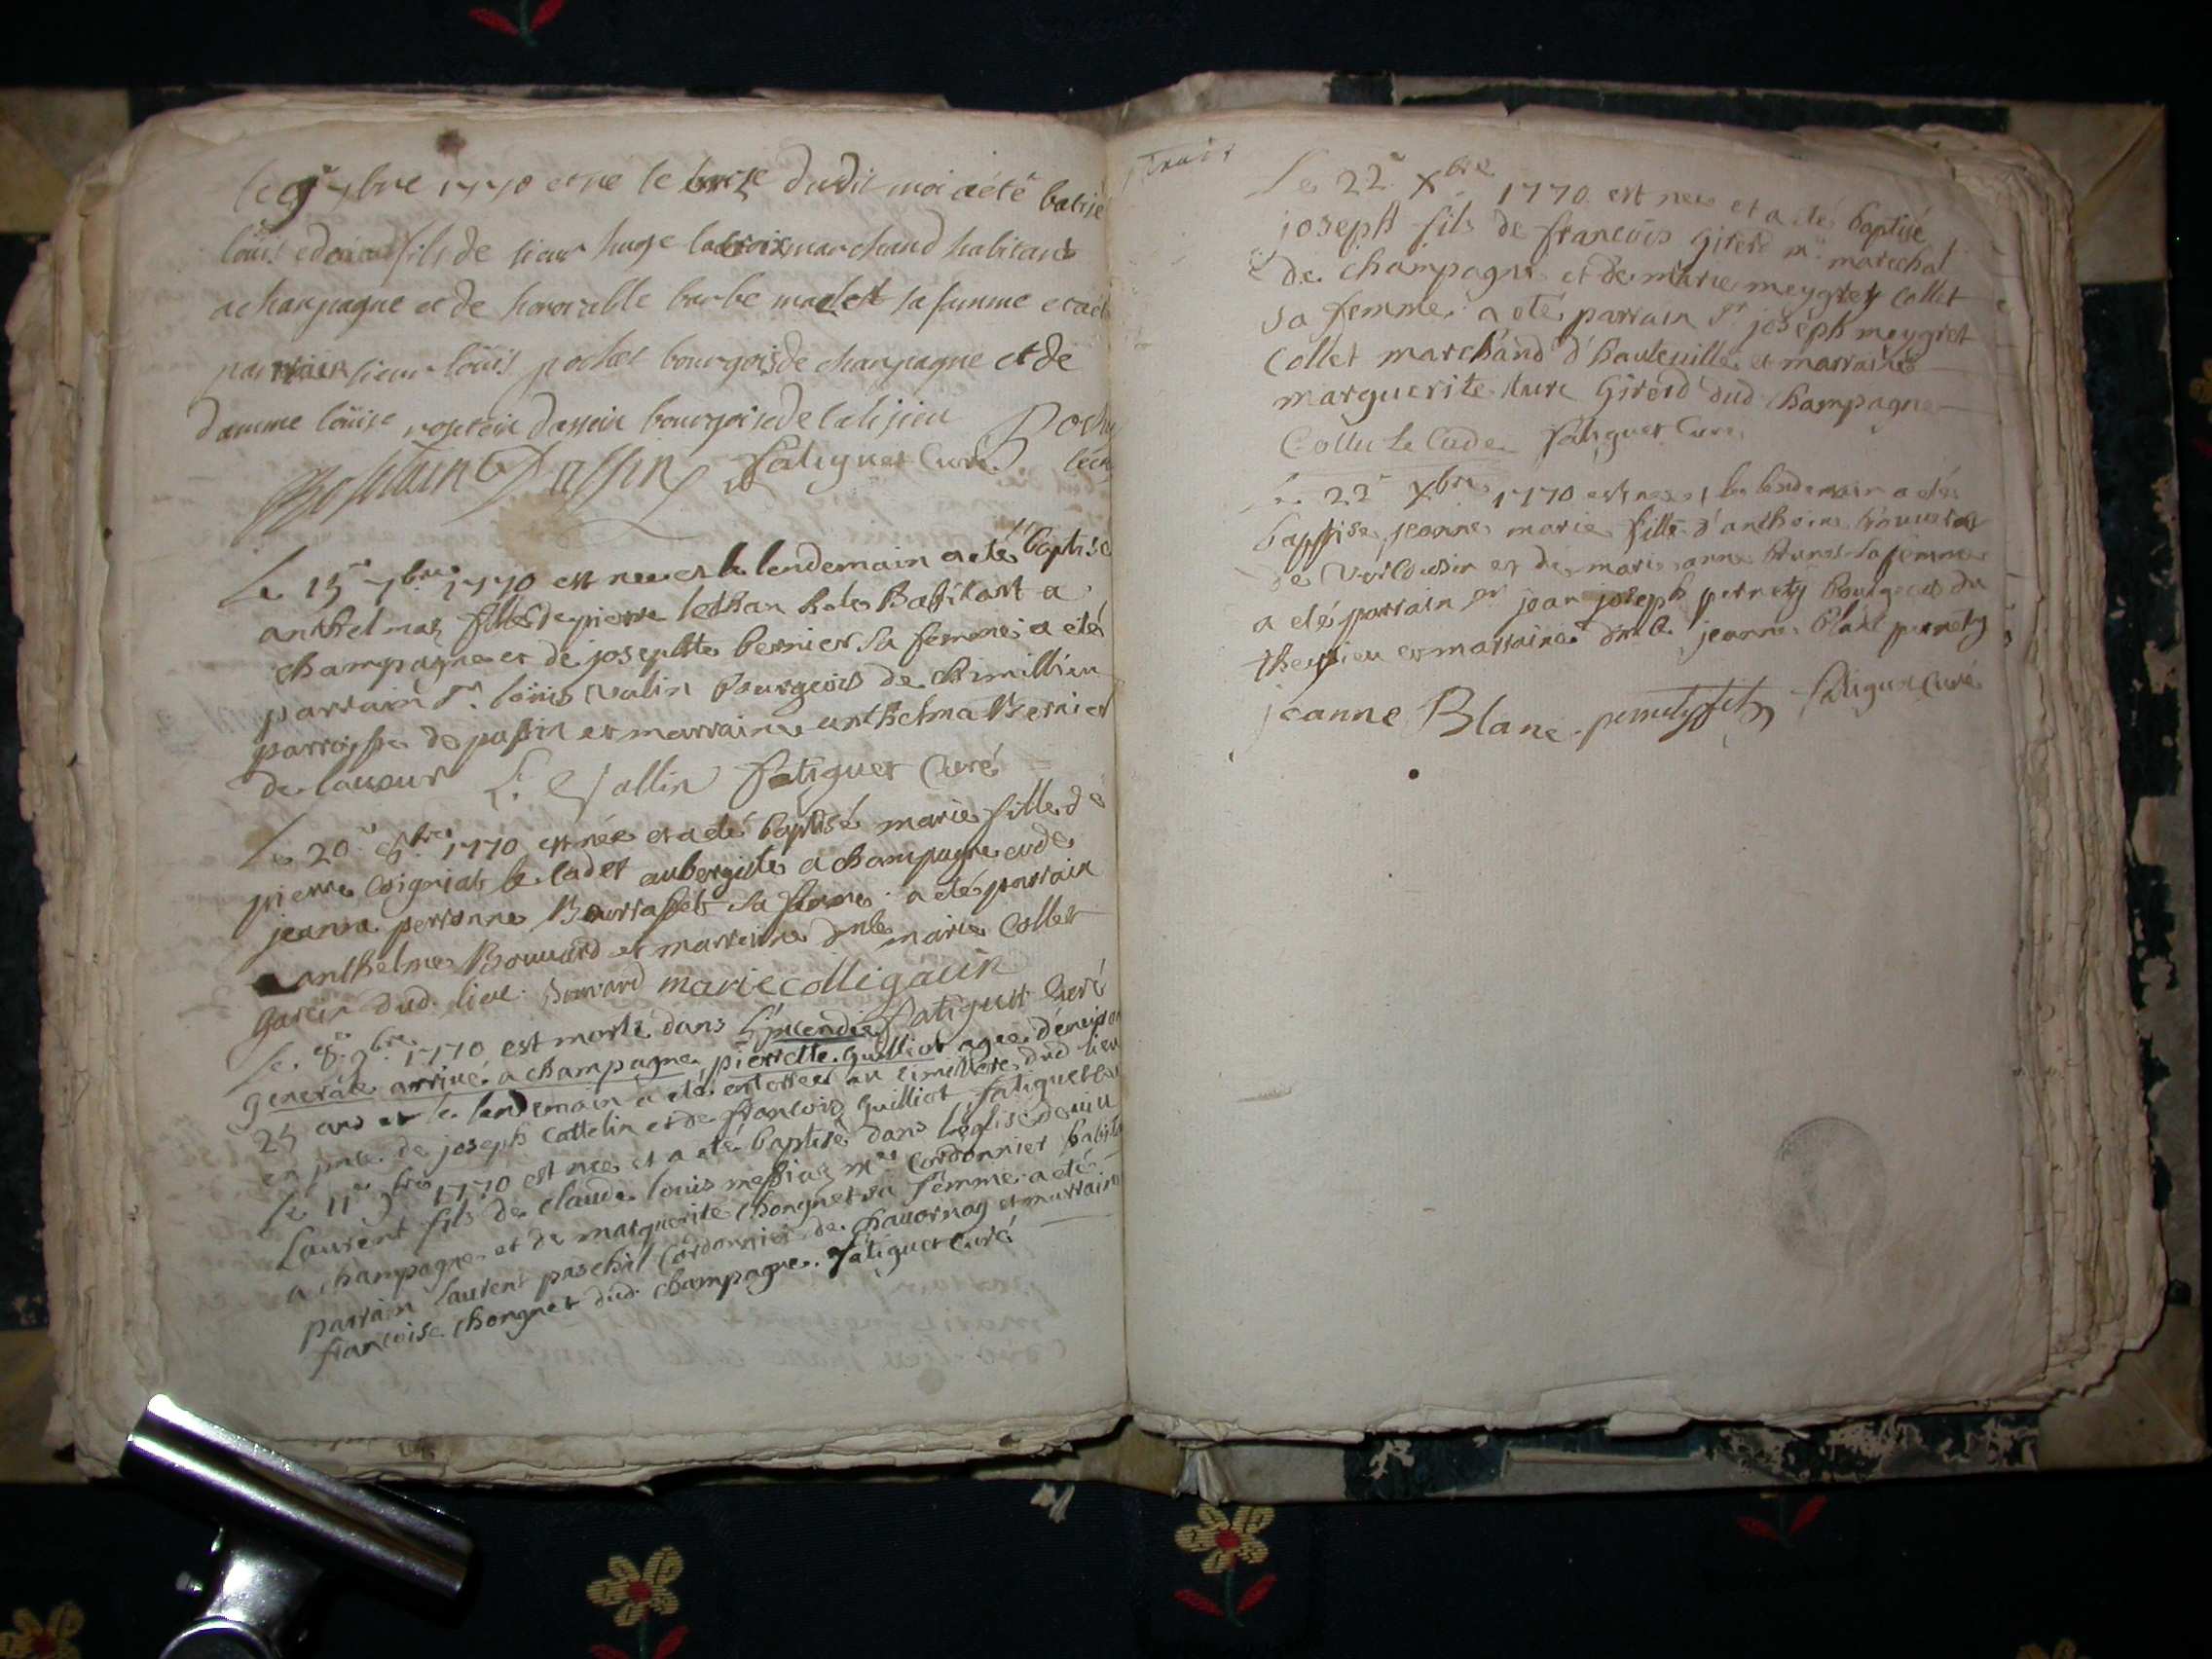 7bre 1770 et né le dudit moi a été batisé
loüis edouard fils de sieur huge lacroix marchand habitant
a champagne et de honorable barbe sa famme et a été
parrain sieur loüis pochet bourgois de champagne et de
damme loüise rostain dassin bourgoise de
Rostaing Dassin fatiguet Curé Pochet
Le 15e 7bre 1770 est née et le lendemain a eté baptisé
anthelmaz fille de pierre hote Habitant a
champagne et de josephte bernier sa femme: a eté
parrain sr. loüis valin bourgeois de chimillieu
parroisse de passin et marraine anthelma Bernier
de lavour L. Vallin fatiguet Curé
Le 20e 8bre 1770 est née et a eté baptisé marie fille de
pierre le cadet aubergiste a champagne et de
jeanne perronne sa femme: a eté parrain
anthelme Bouvard et marraine dlle marie Collet
garein dud. lieu. Bouvard marie collet garein
fatiguet Curé
Le 8e 9bre 1770 est morte dans l'incendie
generale arrivé a champagne, pierrette Guilliot agée d'environ
25 ans et le lendemain a eté enterrée au cimitiere dud lieu
en pnce de joseph Cattelin et de françois Guilliot fatiguet
Le 11e 9bre 1770 est née et a eté baptisé dans l'église de
Laurent fils de claude louis messiaz me cordonnier
a champagne et de marguerite Chongnet sa femme: a eté
parrain laurent paschal Cordonnier de Chavornay et marraine
françoise Chongnet dud. champagne. fatiguet curé
Le 22e Xbre 1770 est nee et a eté baptisé
joseph fils de françois Girerd me marechal
de champagne et de marie meygret Collet
sa femme: a eté parrain sr joseph meygret
Collet marchand d'hauteville et marraine
marguerite Girerd dud champagne
Collet Le Cadet fatiguet Curé
Le 22e Xbre 1770 est nee et le lendemain a eté
baptisé jeanne marie fille d'anthoine
de et de marie anne sa femme
a eté parrain sr jean joseph pernety bourgeois du
et marraine dlle jeanne blanc pernety
jeanne Blanc pernety fils fatiguet Curé